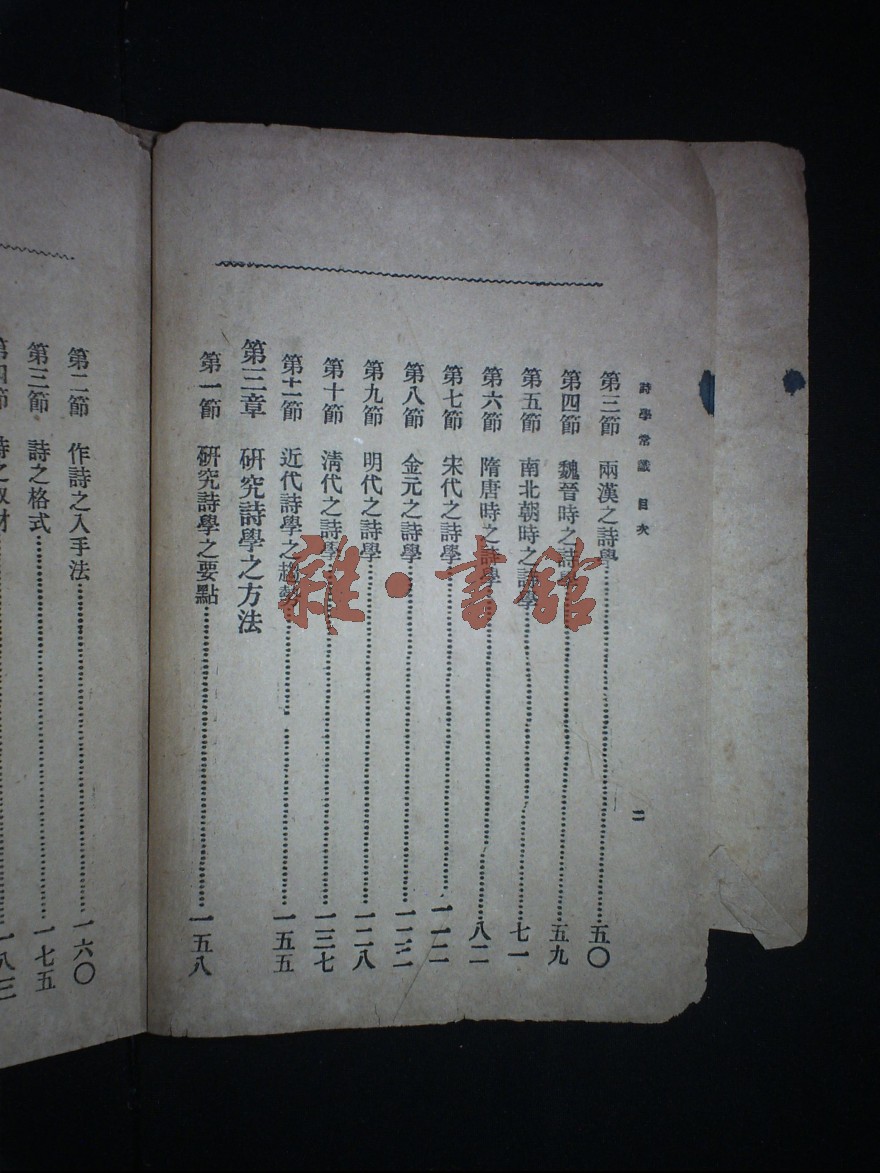 詩學常識 目次
二
第三節 兩漢之詩學 五〇
第四節 魏晉時之詩學 五九
第五節 南北朝時之詩學 七一
第六節 隋唐時之詩學 八二
第七節 宋代之詩學 一一二
第八節 金元之詩學 一二二
第九節 明代之詩學 一二八
第十節 淸代之詩學 一三七
第十一節 近代詩學之趨勢 一五五
第三章 硏究詩學之方法
第一節 硏究詩學之要點 一五八
第二節 作詩之入手法 一六〇
第三節 詩之格式 一七五
第四節 詩之取材 一八三
雜·書館